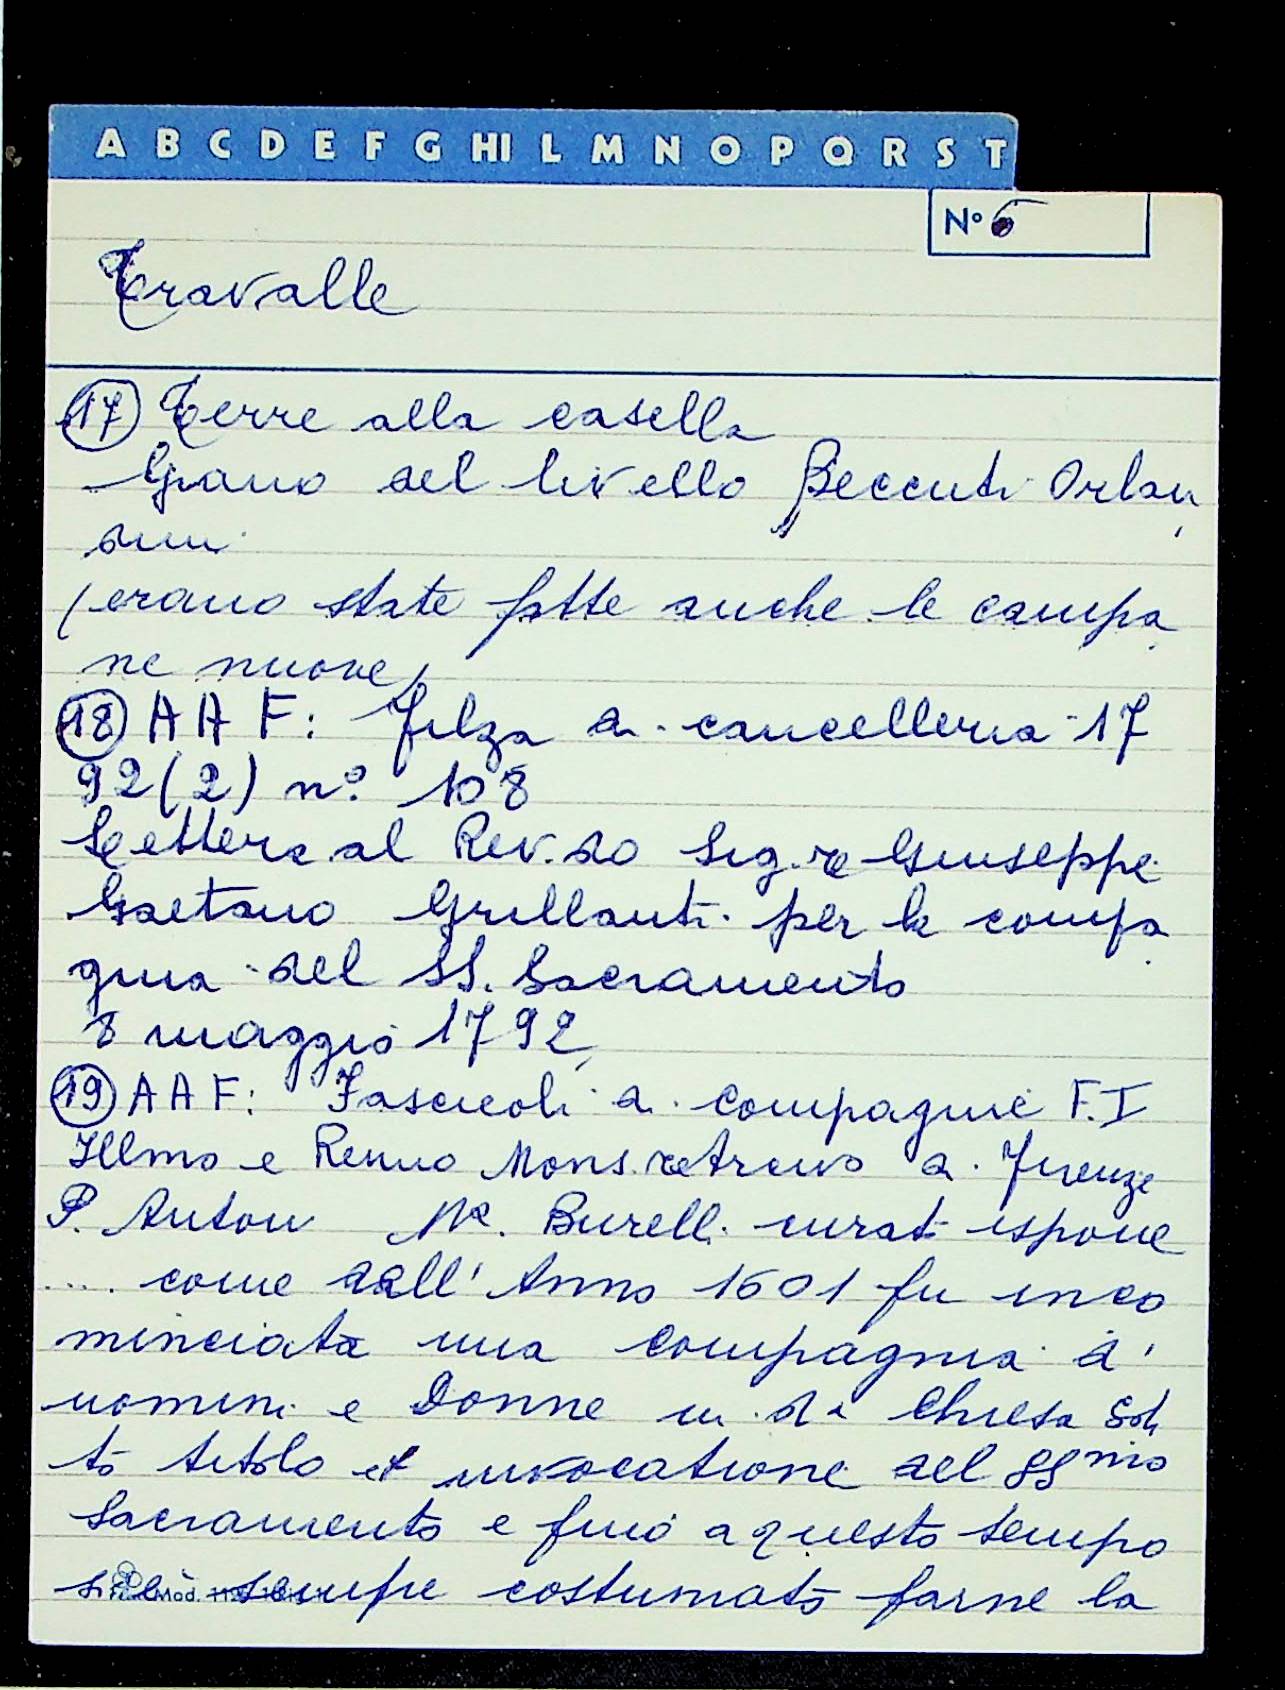 A B C D E F G HI L M N O P Q R S T
N° 6
Travalle
17 Terre alla casella
Grano del livello Beccuti Orlan
dini
(erano state fatte anche le campa
ne nuove)
18 A A F: Filza di cancelleria 17
92(2) n° 108
Lettera al Rev.do Sig.re Giuseppe
Gaetano Grillanti per la compa
gnia del SS. Sacramento
8 maggio 1792
19 A A F: Fascicoli di compagnie F. I
Illmo e Revmo Mons.re Arcivo di Firenze
P. Anton Ma. Burelli curat espone
.... come dall' Anno 1601 fu inco
minciata una compagnia d'
uomini e Donne in da Chiesa Sot
to titolo et invocatione del SSmo
Sacramento e fino a questo tempo
si è sempre costumato farne la